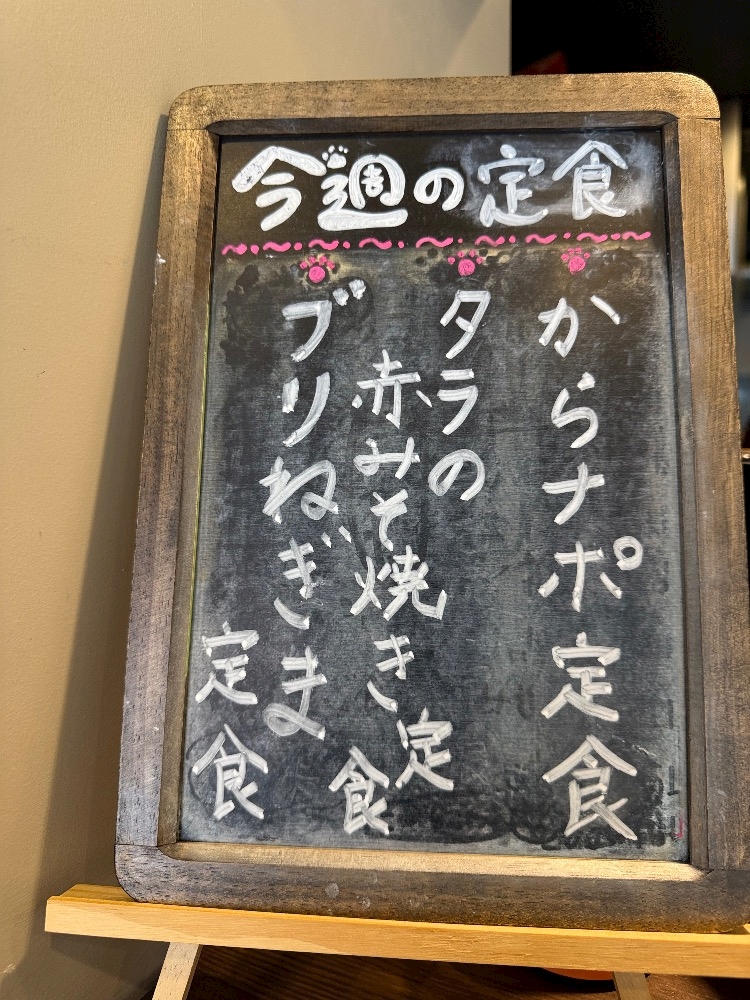 今週の定食
からナポ定食
タラの
赤みそ焼き定食
ブリねぎま
定食